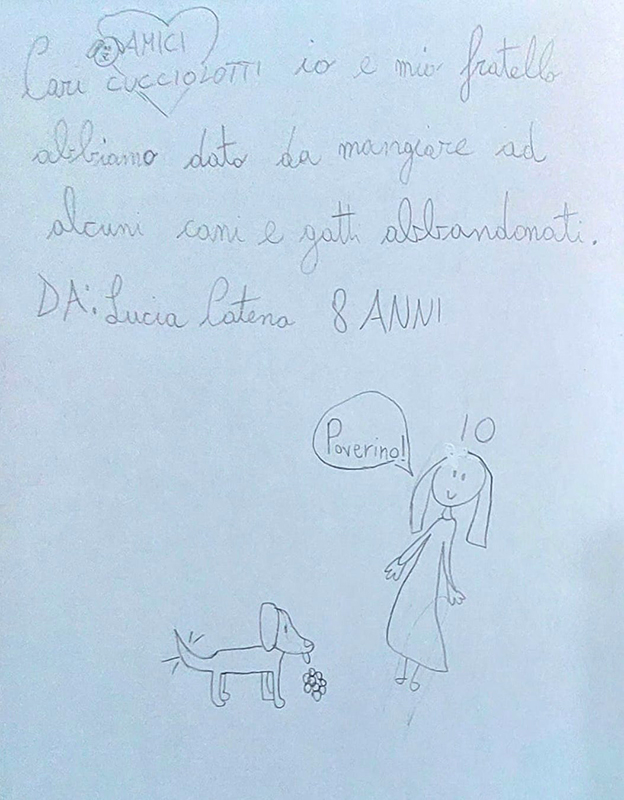 AMICI
Cari CUCCIOLOTTI io e mio fratello
abbiamo dato da mangiare ad
alcuni cani e gatti abbandonati.
DA: Lucia Catena 8 ANNI
IO
Poverino!